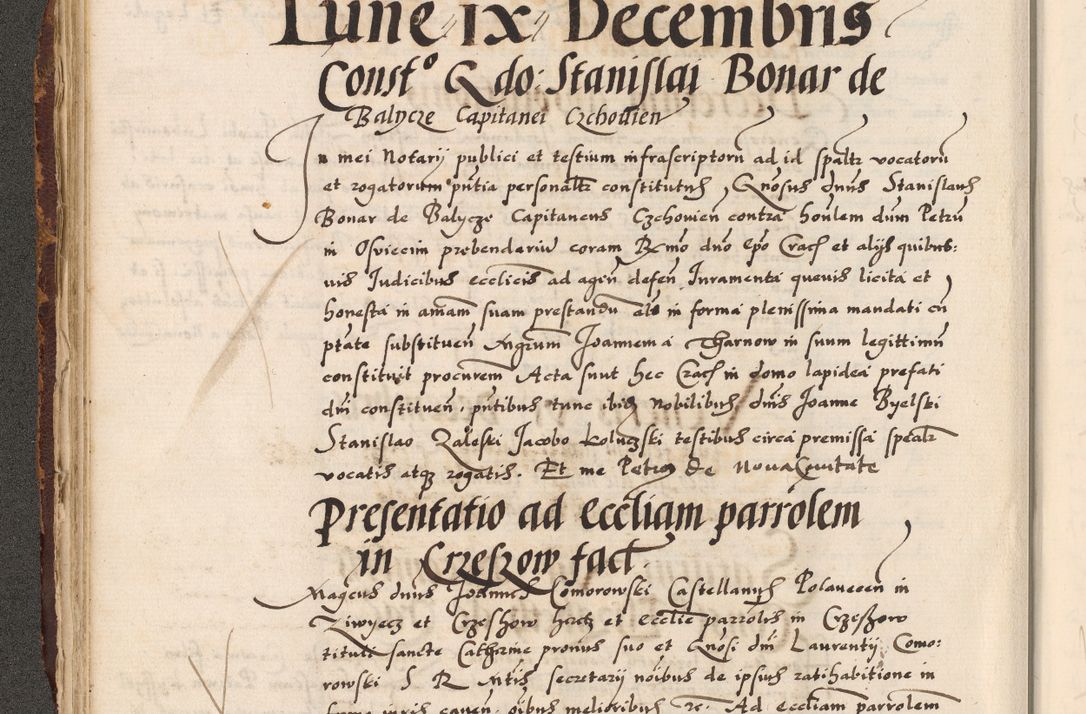 Lune ix Decembris
Constº G do: Stanislai Bonar de
Balycze Capitanei Czchovien
In mei Notarij publici et testium infrascriptoru ad id spaltr vocatoru
et rogatorum pntia personaltr constitutus Gnosus dnus Stanislaus
Bonar de Balycze Capitaneus Czchovien contra honlem dum Petru
in Osviecim prebendariu coram Rmo dno Epo Crac et alijs quibus:
vis Iudicibus ecclicis ad agen defen Iuramenta quevis licita et
honesta in amam suam prestandu etc in forma plenissima mandati cu
ptate substituen Mgrum Joannem a Tharnow in suum legittimu
constituit procurem Acta sunt hec Crac in domo lapidea prefati
dni constituen, pntibus tunc ibid Nobilibus dnis Joanne Byelski
Stanislao Zaleski Jacobo Koluczski testibus circa premissa spealtr
vocatis atq rogatis. Et me Petro de Nova Civitate
Presentatio ad eccliam parrolem
in Crzeszow fact
Magcus dnus Joannes Comorowski Castellanus Polanecen in
Ziwyecz et Crzeshow heres et ecclie parrolis in Crzeshow
tituli sancte Catherine pronus suo et Gnosi dni Laurentij Como:
rowski S R Mtis secretarij noibus de ipsius ratihabitione in
forma iuris caven. oibus melioribus etc. Ad eccliam parrolem